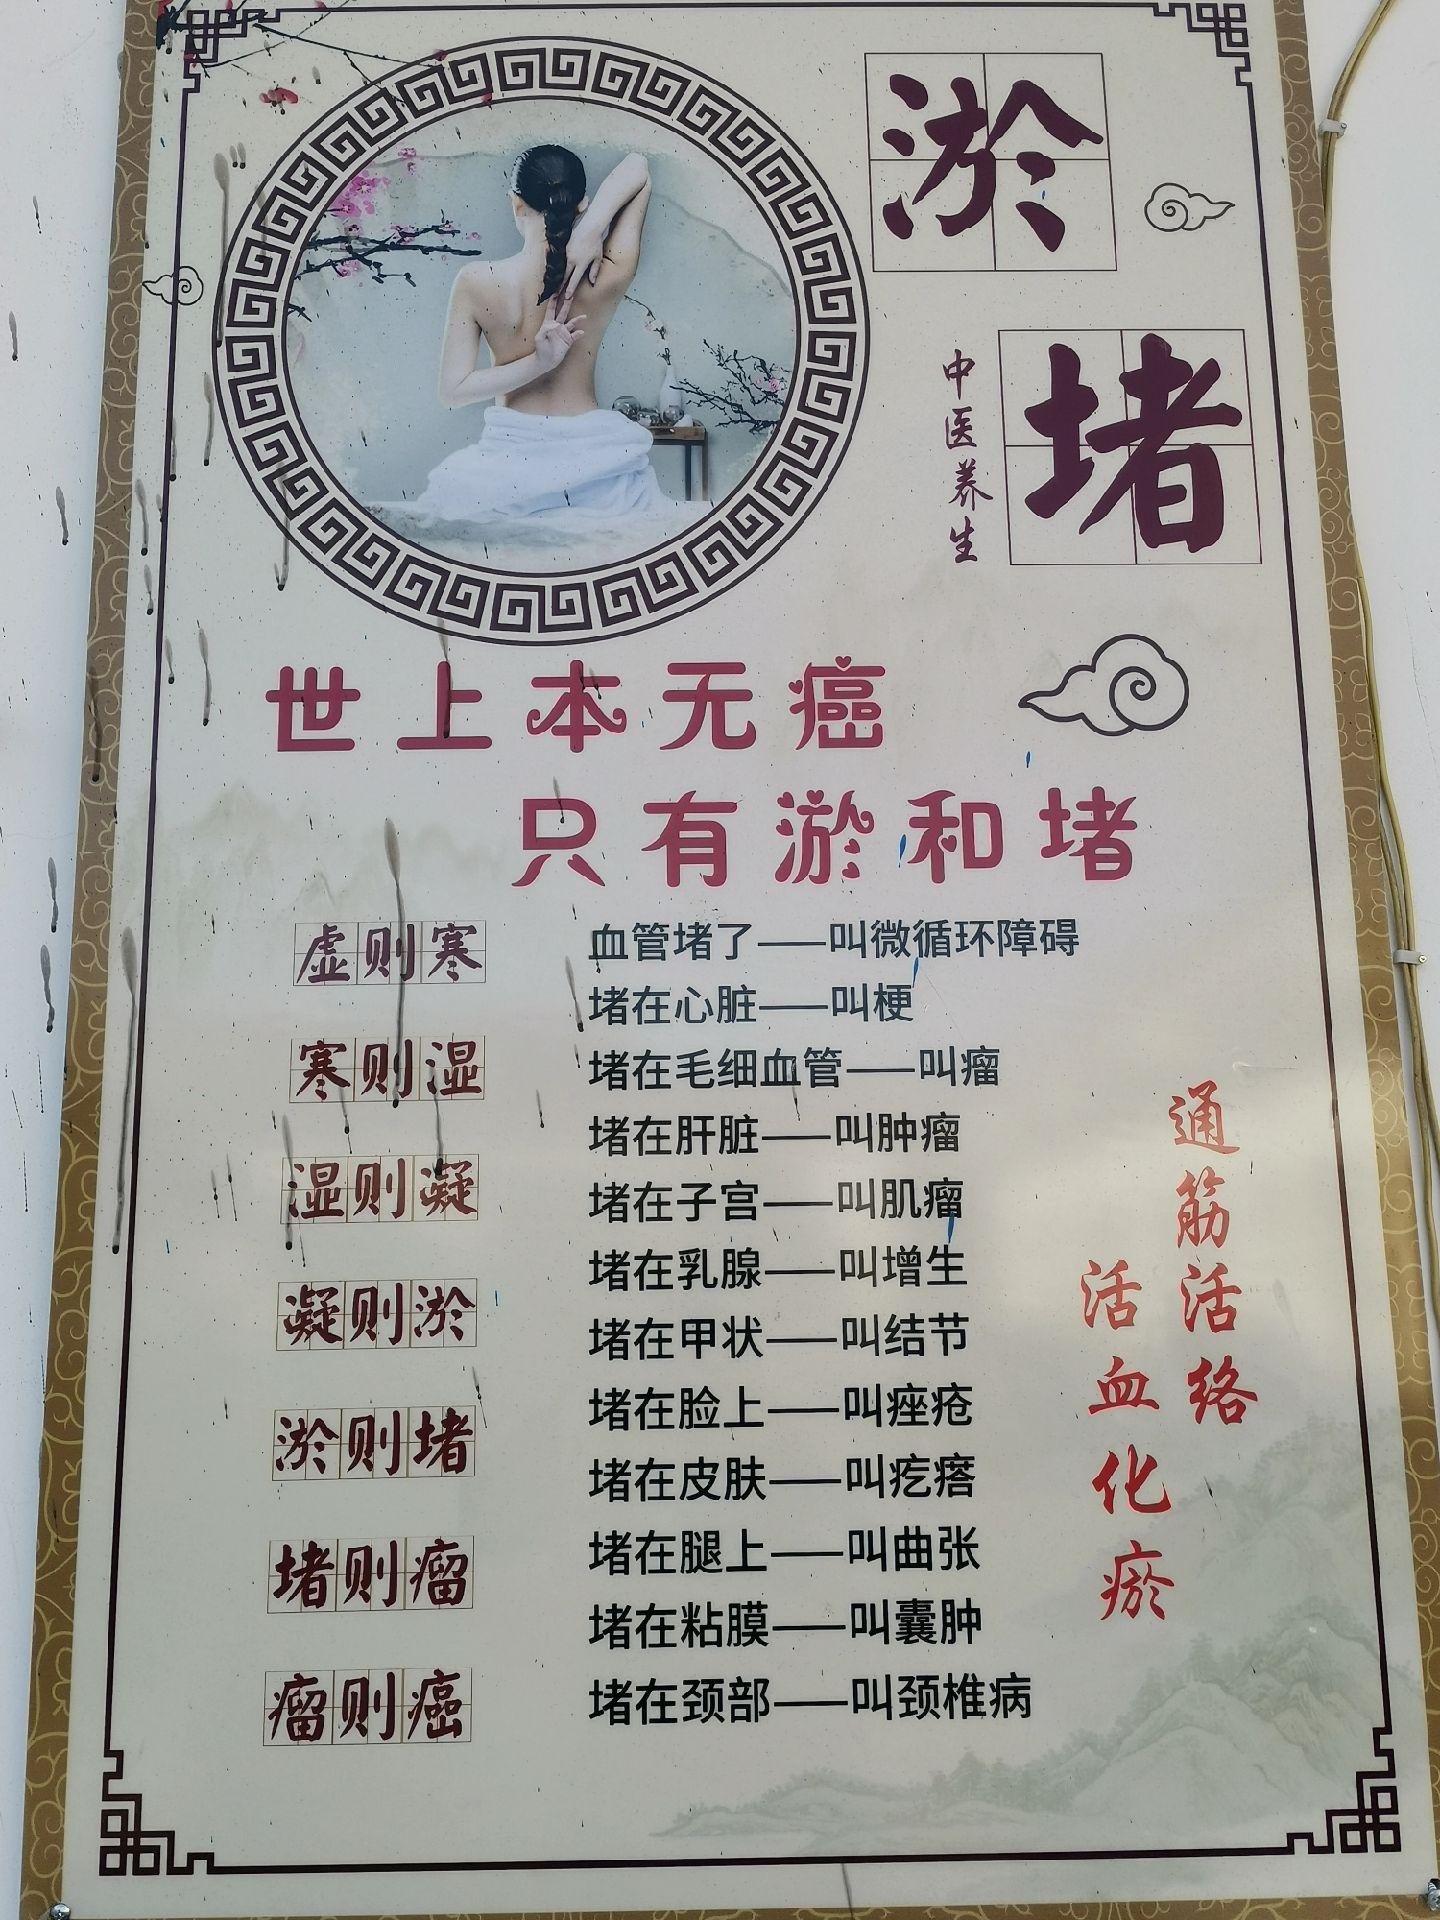 淤堵
中医养生
世上本无癌
只有淤和堵
虚则寒
寒则湿
湿则凝
凝则淤
淤则堵
堵则瘤
瘤则癌
血管堵了——叫微循环障碍
堵在心脏——叫梗
堵在毛细血管——叫瘤
堵在肝脏——叫肿瘤
堵在子宫——叫肌瘤
堵在乳腺——叫增生
堵在甲状——叫结节
堵在脸上——叫痤疮
堵在皮肤——叫疙瘩
堵在腿上——叫曲张
堵在粘膜——叫囊肿
堵在颈部——叫颈椎病
通筋活络
活血化瘀